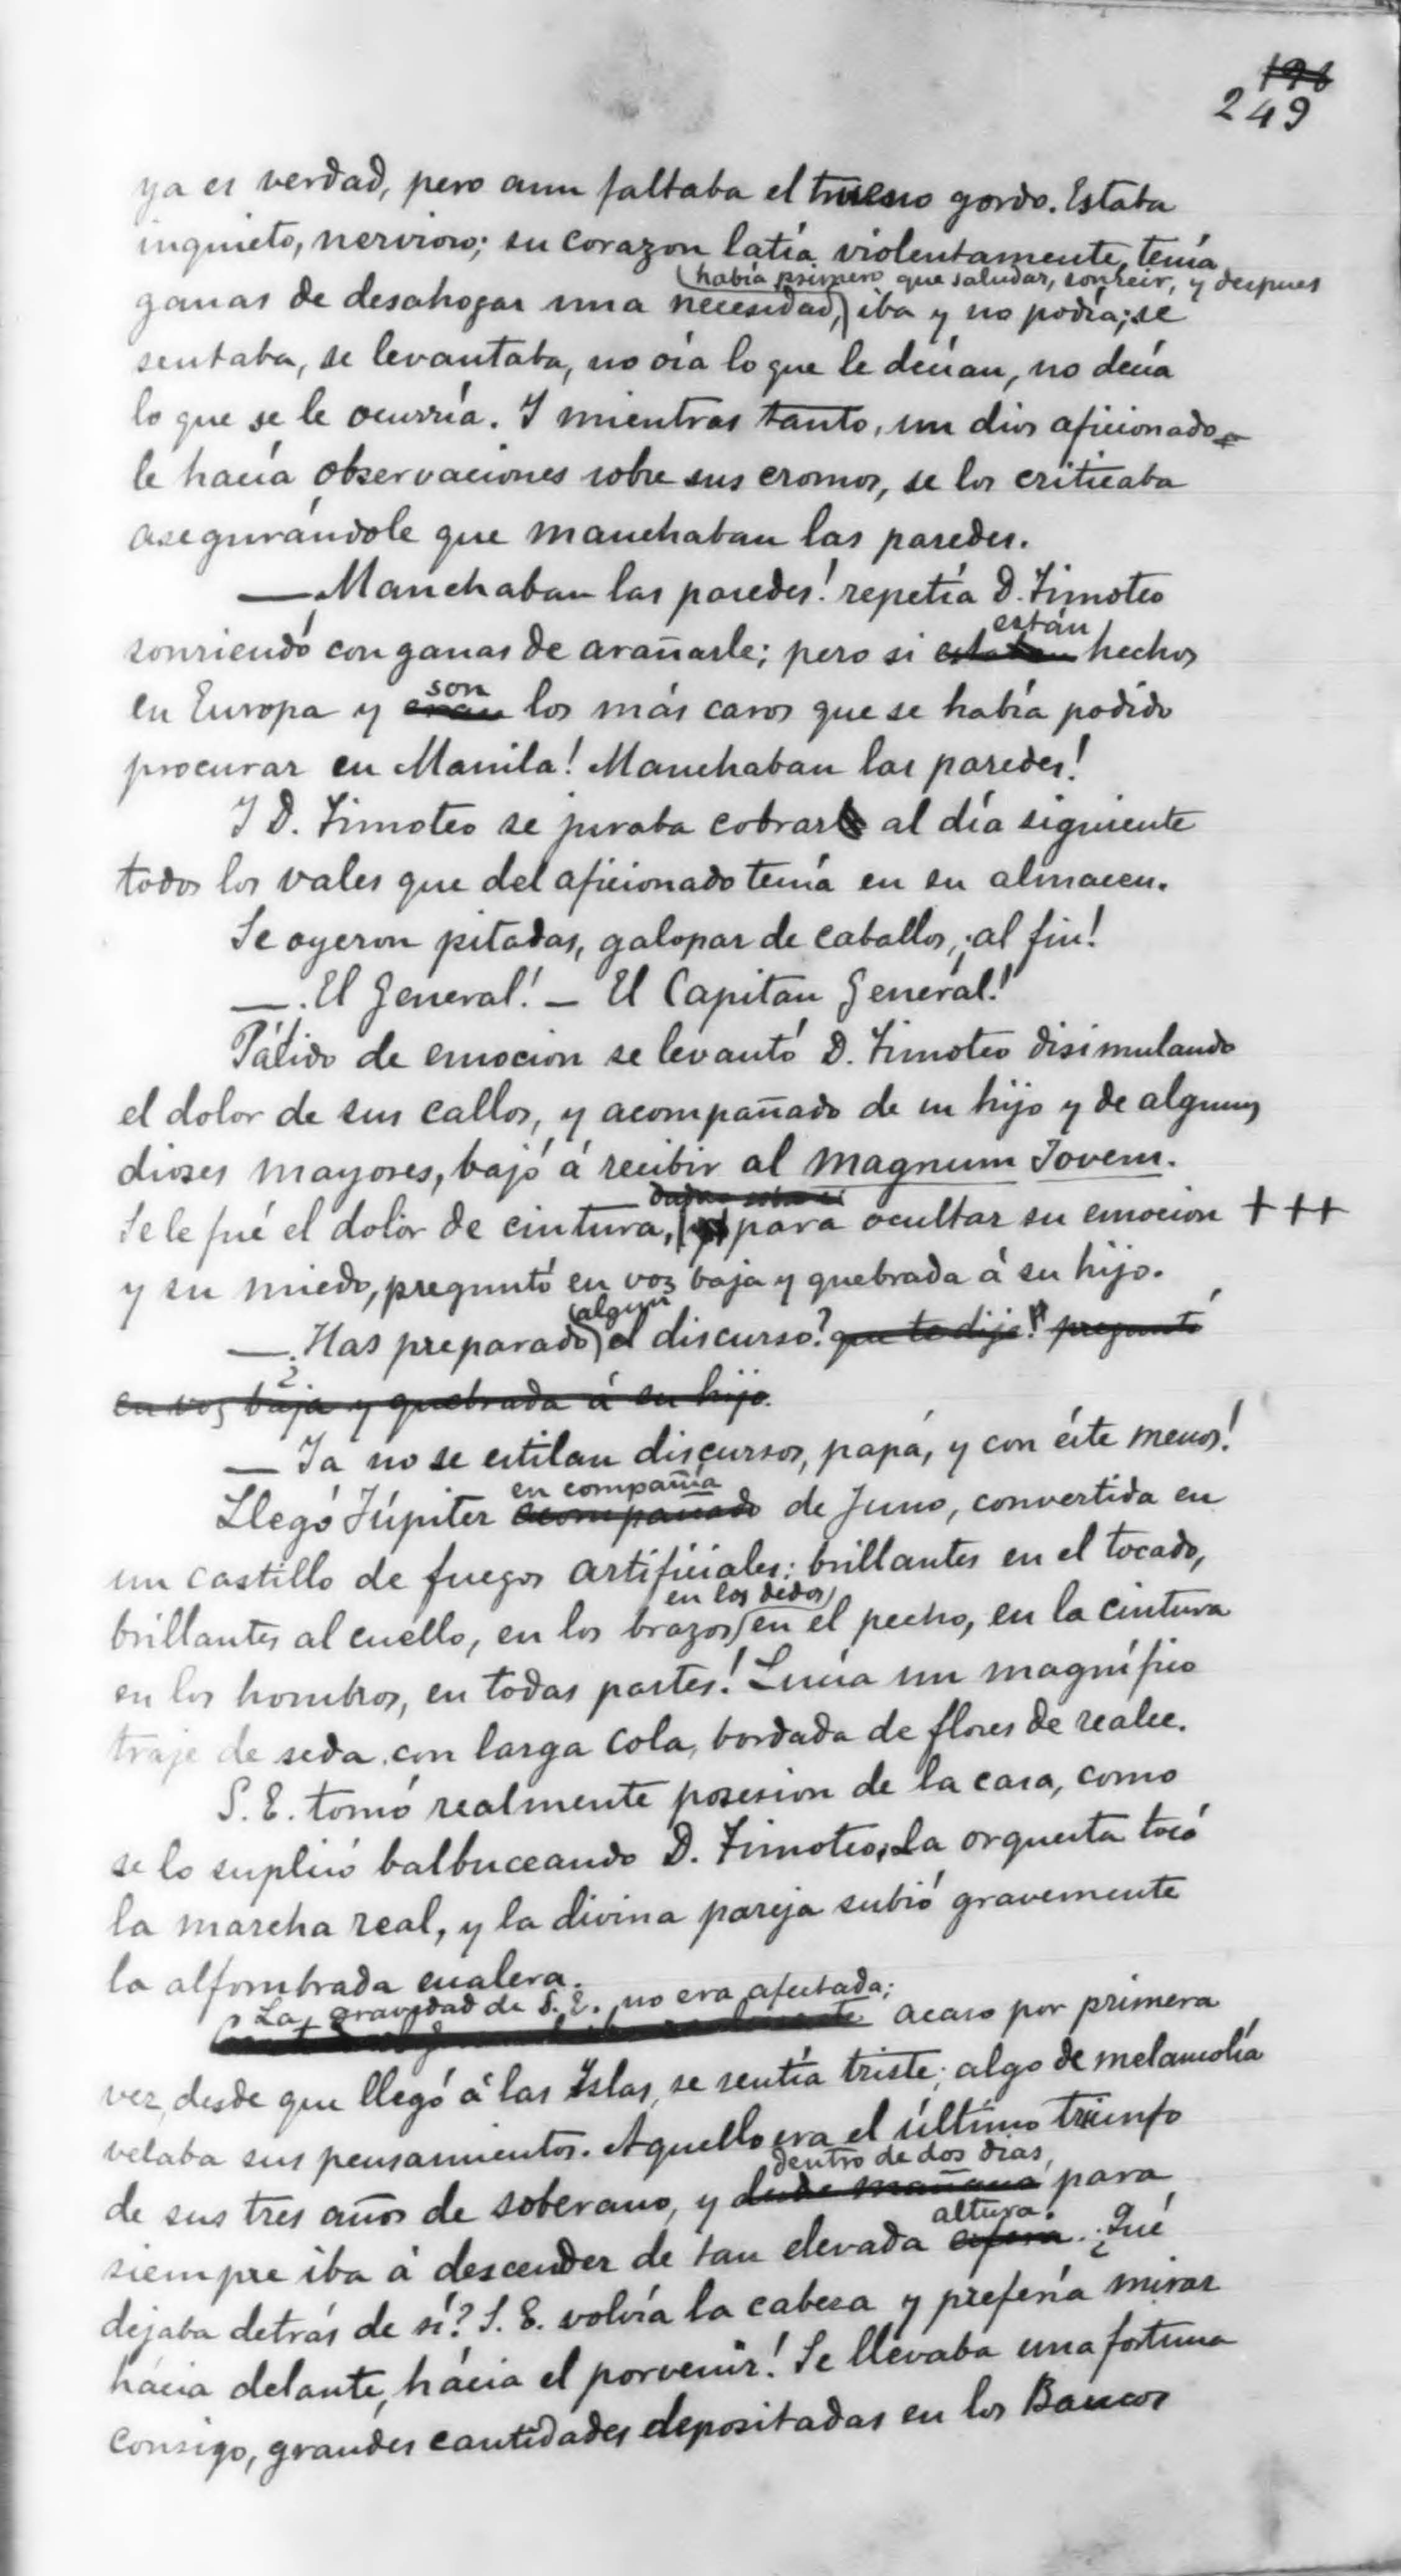 196
249
ya es verdad, pero aun faltaba el trueno gordo. Estaba
inquieto, nervioso; su corazon latía violentamente, tenía
(había primero que saludar, sonreir, y despues
ganas de desahogar una necesidad,) iba y no podía; se
sentaba, se levantaba, no oía lo que le decían, no decía
lo que se le ocurría. Y mientras tanto, un dios aficionado
le hacía observaciones sobre sus cromos, se los criticaba
asegurándole que manchaban las paredes.
—¡Manchaban las paredes! repetía D. Timoteo
están
sonriendo con ganas de arañarle; pero si estaban hechos
son
en Europa y eran los más caros que se había podido
procurar en Manila! Manchaban las paredes!
Y D. Timoteo se juraba cobrar al día siguiente
todos los vales que del aficionado tenía en su almacen.
Se oyeron pitadas, galopar de caballos, ¡al fin!
—¡El General! — El Capitan General!
Pálido de emocion se levantó D. Timoteo disimulando
el dolor de sus callos, y acompañado de su hijo y de algunos
dioses mayores, bajó á recibir al magnum Jovem.
Se le fué el dolor de cintura, para ocultar su emocion +++
y su miedo, preguntó en voz baja y quebrada á su hijo.
(algun
—¿Has preparado) el discurso? que te dije? preguntó
en voz baja y quebrada á su hijo.
— Ya no se estilan discursos, papá, y con éste menos!
en compañía
Llegó Júpiter acompañado de Juno, convertida en
un castillo de fuegos artificiales: brillantes en el tocado,
en los dedos
brillantes al cuello, en los brazos) en el pecho, en la cintura
en los hombros, en todas partes! Lucía un magnífico
traje de seda con larga cola, bordada de flores de realce.
S. E. tomó realmente posesion de la casa, como
se lo suplicó balbuceando D. Timoteo. La orquesta tocó
la marcha real, y la divina pareja subió gravemente
la alfombrada escalera.
La gravedad de S. E. no era afectada;
acaso por primera
vez, desde que llegó á las Islas, se sentía triste; algo de melancolía
velaba sus pensamientos. Aquello era el último triunfo
dentro de dos días,
de sus tres años de soberano, y desde mañana para
altura.
siempre iba á descender de tan elevada esfera. ¿Qué
dejaba detrás de sí? S. E. volvía la cabeza y prefería mirar
hácia delante, hácia el porvenir! Se llevaba una fortuna
consigo, grandes cantidades depositadas en los Bancos